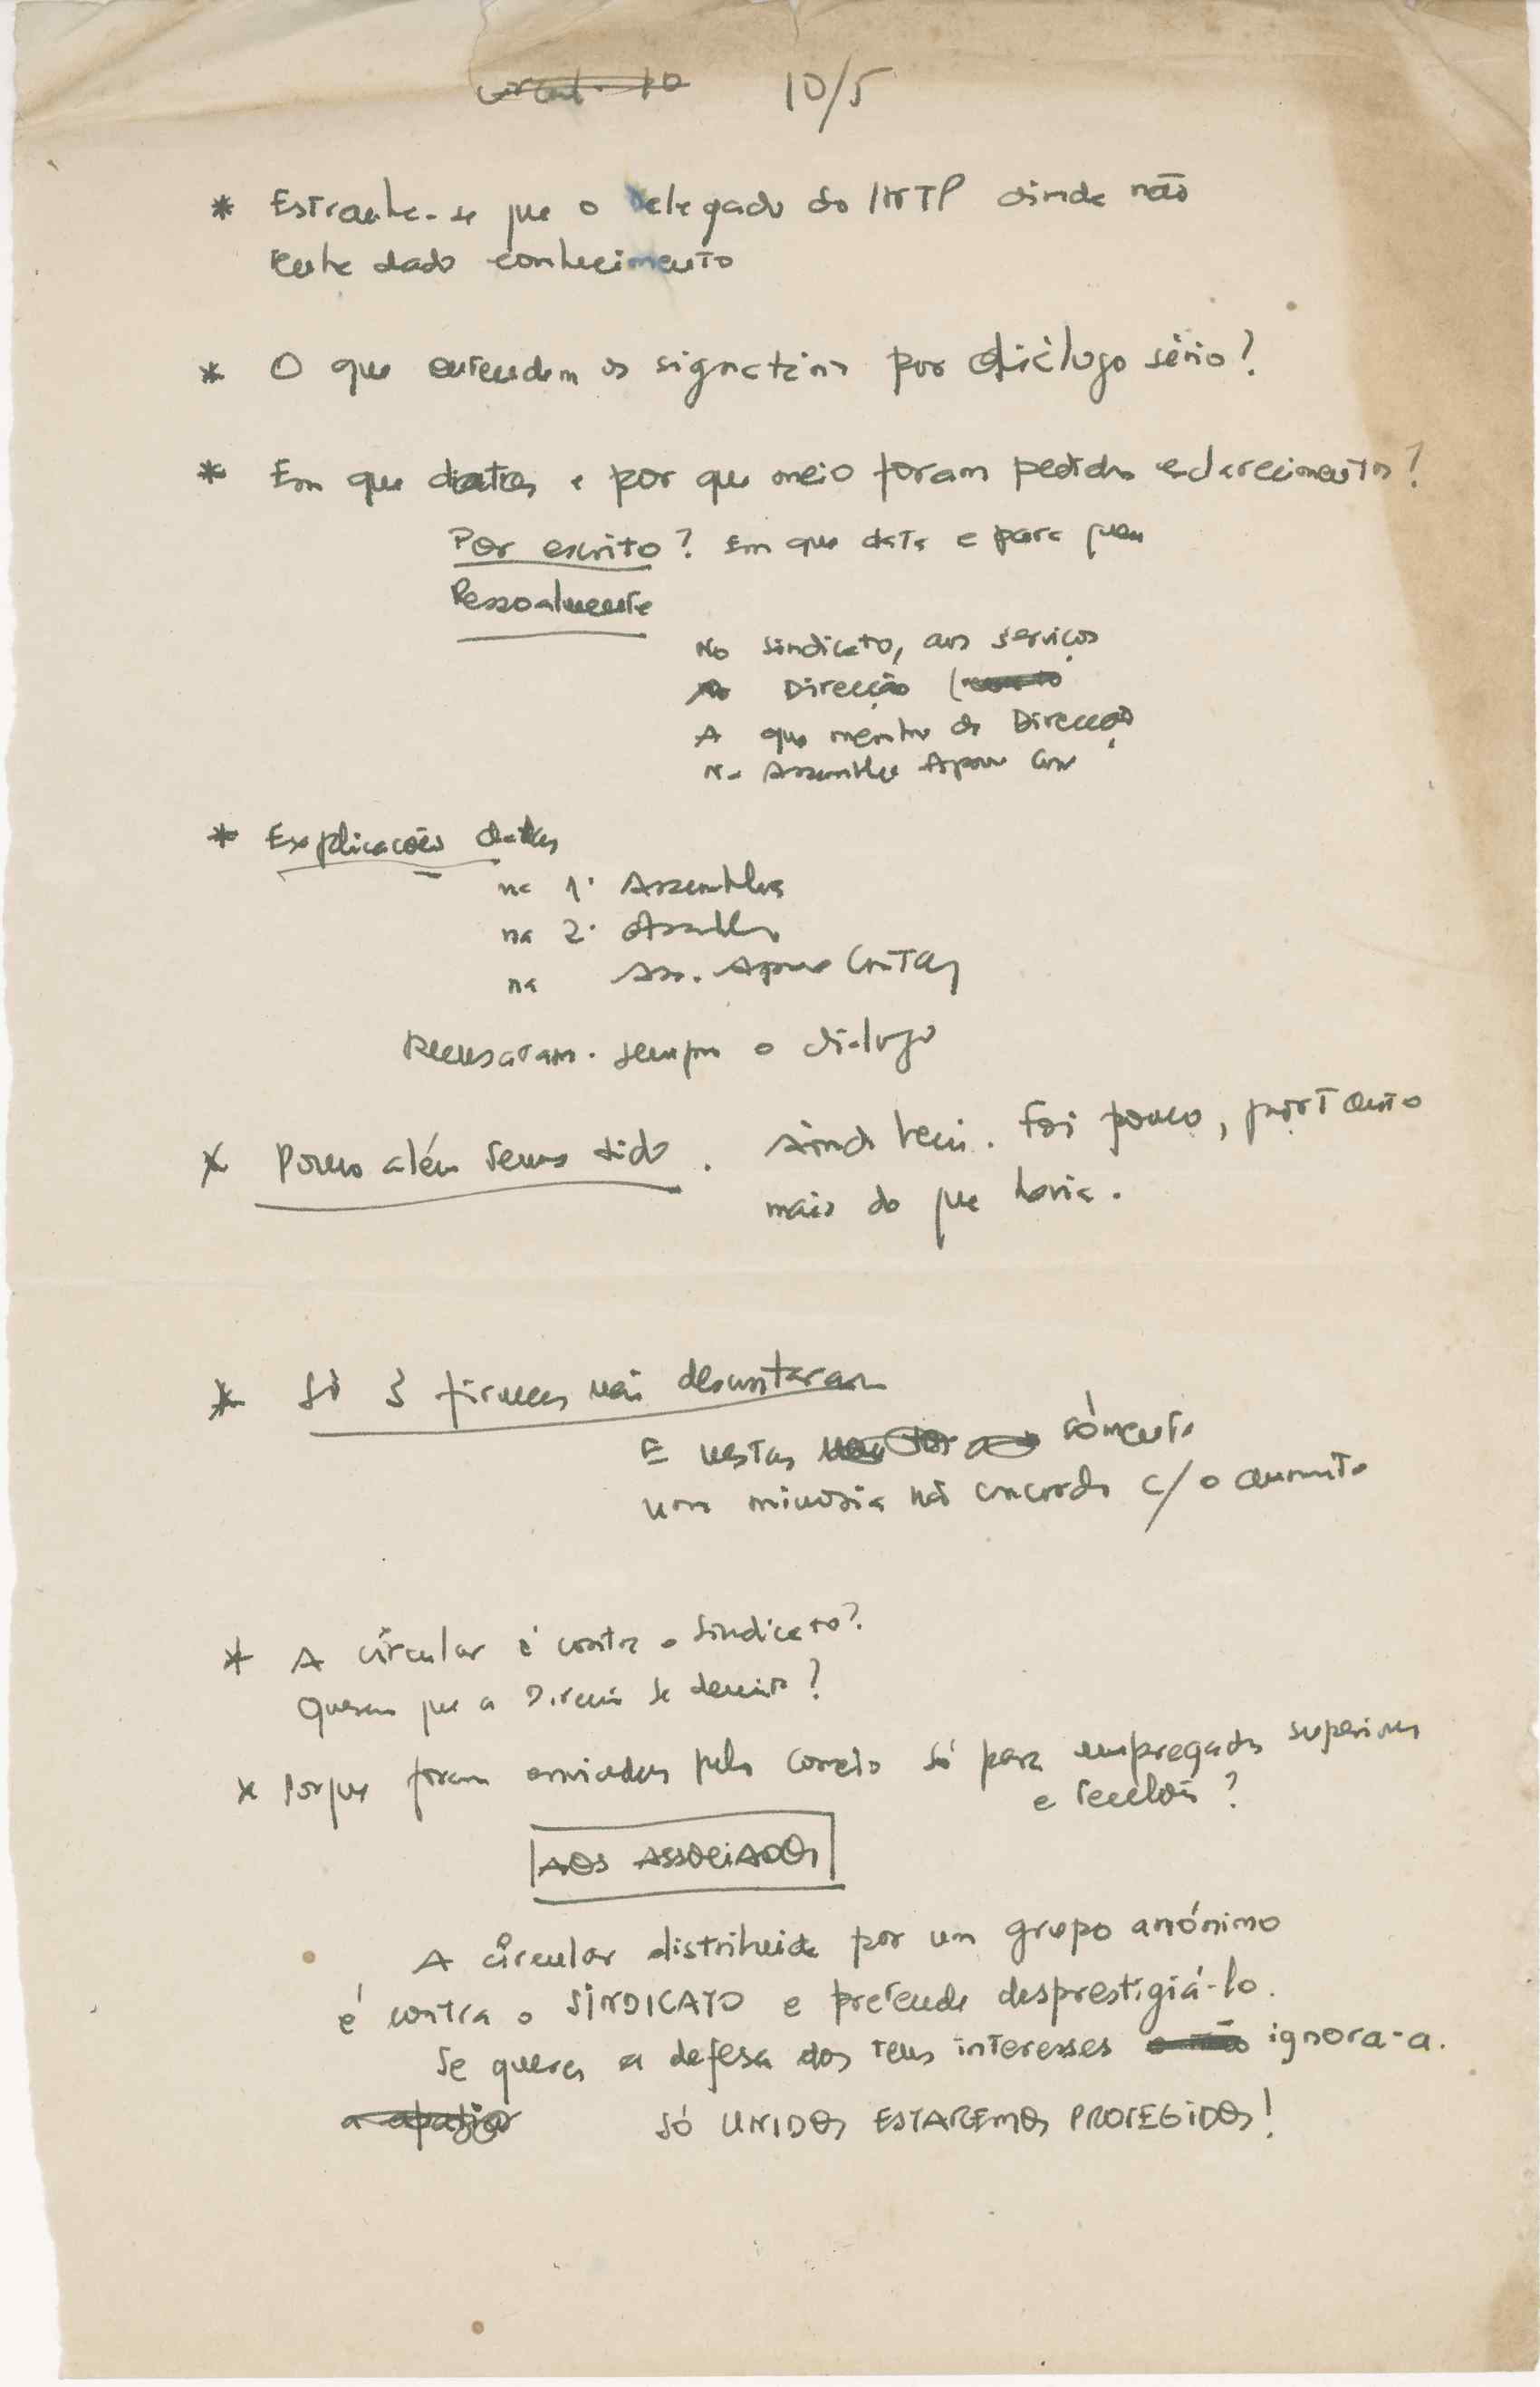 10/5
* Estranha-se que o Delegado do INTP ainda não
tenha dado conhecimento
* O que entendem os signatários por diálogo sério?
* Em que datas e por que meio foram pedidos esclarecimentos?
Por escrito? Em que data e para quem
Pessoalmente
No Sindicato, aos serviços
Direcção
A que membro da Direcção
Na Assembleia
* Explicações dadas
na 1ª Assembleia
na 2ª Assembleia
na Ass. Contas
Recusaram sempre o diálogo
* Pouco além temos tido. Ainda bem. Foi pouco, portanto
mais do que havia.
* Só 3 firmas não descontaram
E nestas sómente
uma minoria não concorda c/ o aumento
* A circular é contra o Sindicato?
Querem que a Direcção se demita?
* Porque foram enviadas pelo correio só para empregados superiores
e ?
AOS ASSOCIADOS
A circular distribuida por um grupo anónimo
é contra o SINDICATO e pretende desprestigiá-lo.
Se queres a defesa dos teus interesses ignora-a.
a apatia SÓ UNIDOS ESTAREMOS PROTEGIDOS!